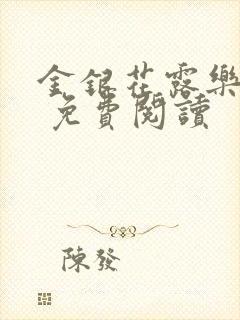 金銀花露樂
免費閱讀
陳發